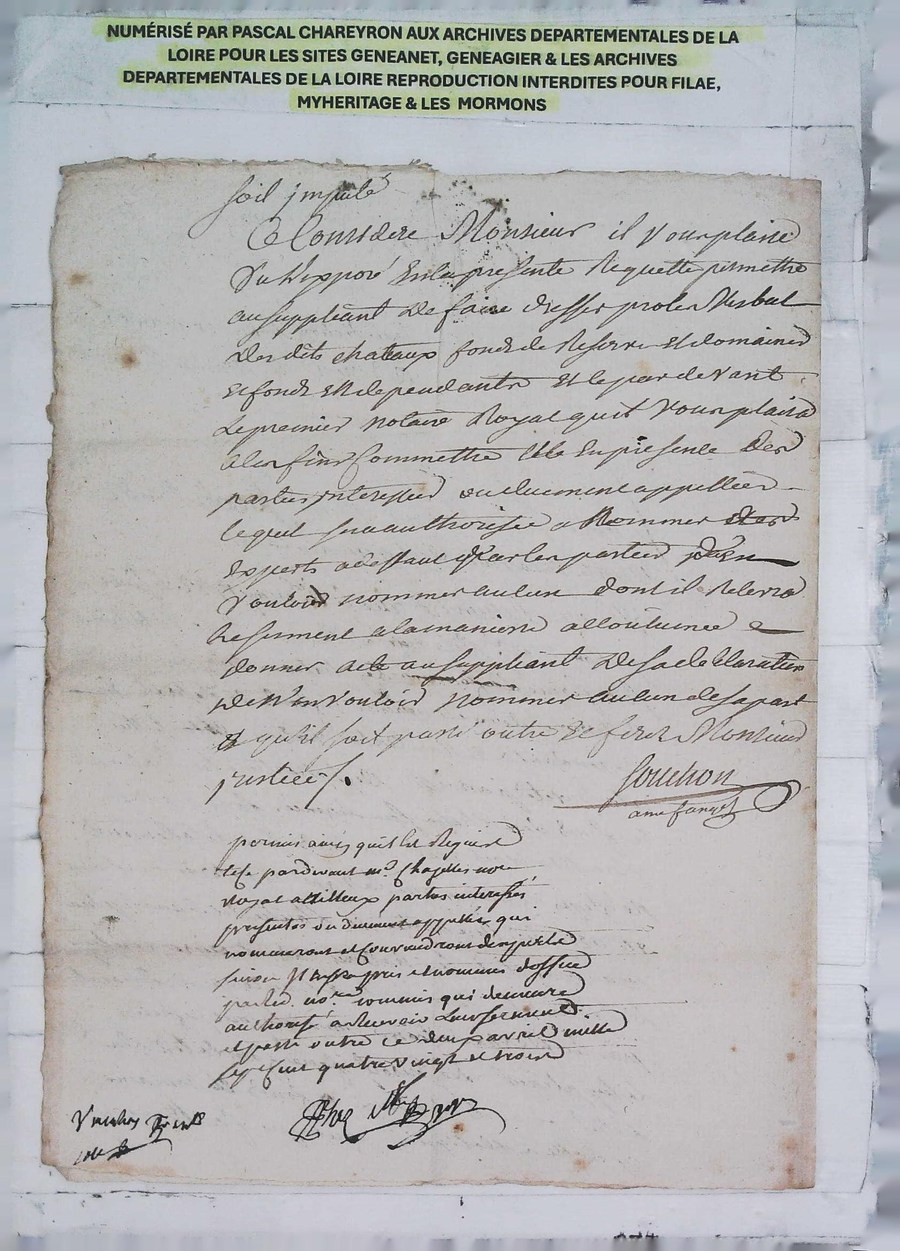 NUMÉRISÉ PAR PASCAL CHAREYRON AUX ARCHIVES DEPARTEMENTALES DE LA
LOIRE POUR LES SITES GENEANET, GENEAGIER & LES ARCHIVES
DEPARTEMENTALES DE LA LOIRE REPRODUCTION INTERDITES POUR FILAE,
MYHERITAGE & LES MORMONS
soit imputé
Ce Considere Monsieur il vous plaise
Vu l'exposé en la presente Requette permettre
au suppliant de faire dresser proces verbal
des dits chateaux fonds de Reserve et domaines
et fonds en dependants et ce par devant
le premier notaire Royal quil vous plaira
a ces fins Commettre et ce en presence des
parties interessées ou duement appellées
lequel sera authorisé a Nommer des
Experts a deffaut par les parties d'en
vouloir nommer aucun dont il Recevra
le serment a la maniere accoutumée
donner acte au suppliant de sa declaration
de n'en vouloir nommer aucun de sa part
et qu'il soit passé outre et ferez Monsieur
justice
Souchon
permis ainsi quil est Requis
et ce pardevant me. Chazelles nore
Royal
parties interessés
presentes ou duement appellés qui
nommeront et conviendront d'experts
sinon en sera pris et nommés d'office
par led. nore. commis qui demeure
authorisé a Recevoir leur serment
et passé outre ce deux avril mille
sept cent quatre vingt et trois